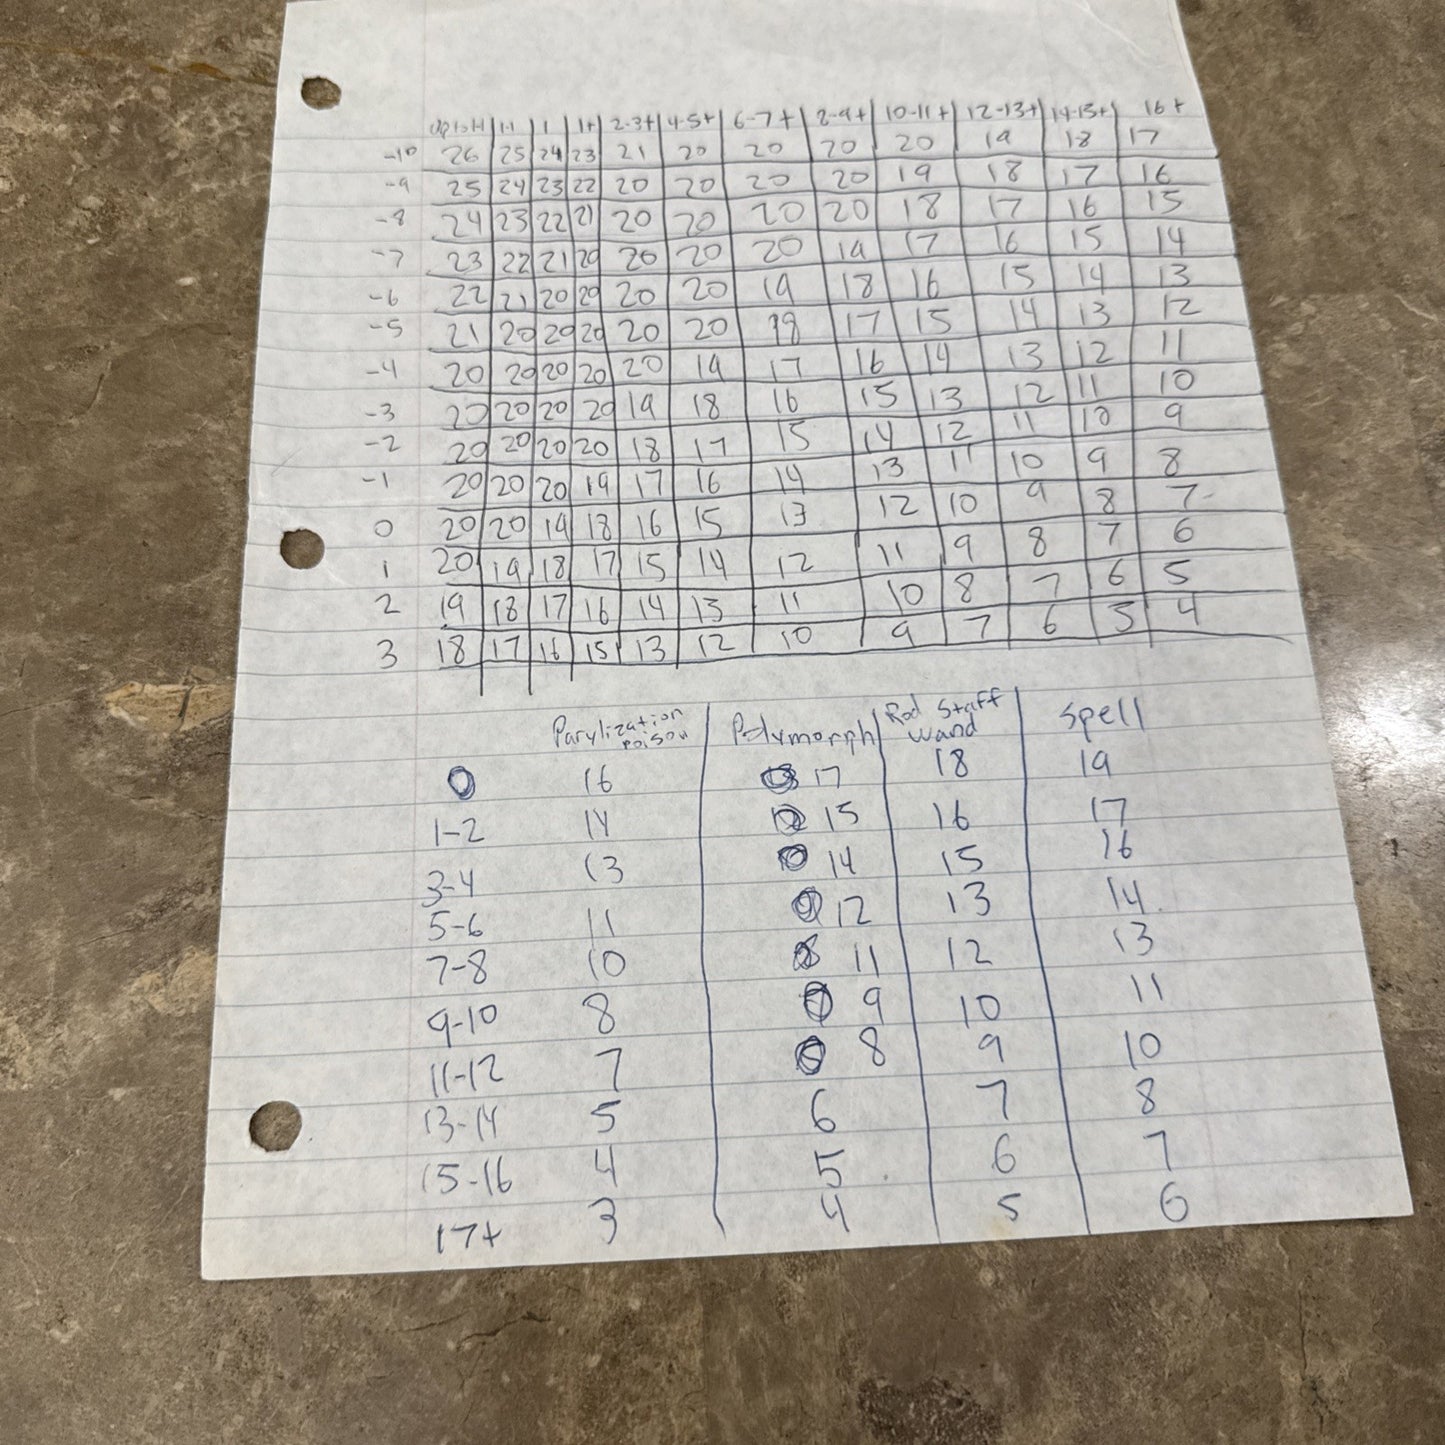 up to 1-1 1-1 1 1+ 2-3+ 4-5+ 6-7+ 8-9+ 10-11+ 12-13+ 14-15+ 16+
-10 26 25 24 23 21 20 20 20 20 19 18 17
-9 25 24 23 22 20 20 20 20 19 18 17 16
-8 24 23 22 21 20 20 20 20 18 17 16 15
-7 23 22 21 20 20 20 20 19 17 16 15 14
-6 22 21 20 20 20 20 19 18 16 15 14 13
-5 21 20 20 20 20 20 18 17 15 14 13 12
-4 20 20 20 20 20 19 17 16 14 13 12 11
-3 20 20 20 20 19 18 16 15 13 12 11 10
-2 20 20 20 20 18 17 15 14 12 11 10 9
-1 20 20 20 19 17 16 14 13 11 10 9 8
0 20 20 19 18 16 15 13 12 10 9 8 7
1 20 19 18 17 15 14 12 11 9 8 7 6
2 19 18 17 16 14 13 11 10 8 7 6 5
3 18 17 16 15 13 12 10 9 7 6 5 4
Parylization Polymorph Rod Staff Spell
poison wand
0 16 17 18 19
1-2 14 15 16 17
3-4 13 14 15 16
5-6 11 12 13 14
7-8 10 11 12 13
9-10 8 9 10 11
11-12 7 8 9 10
13-14 5 6 7 8
15-16 4 5 6 7
17+ 3 4 5 6